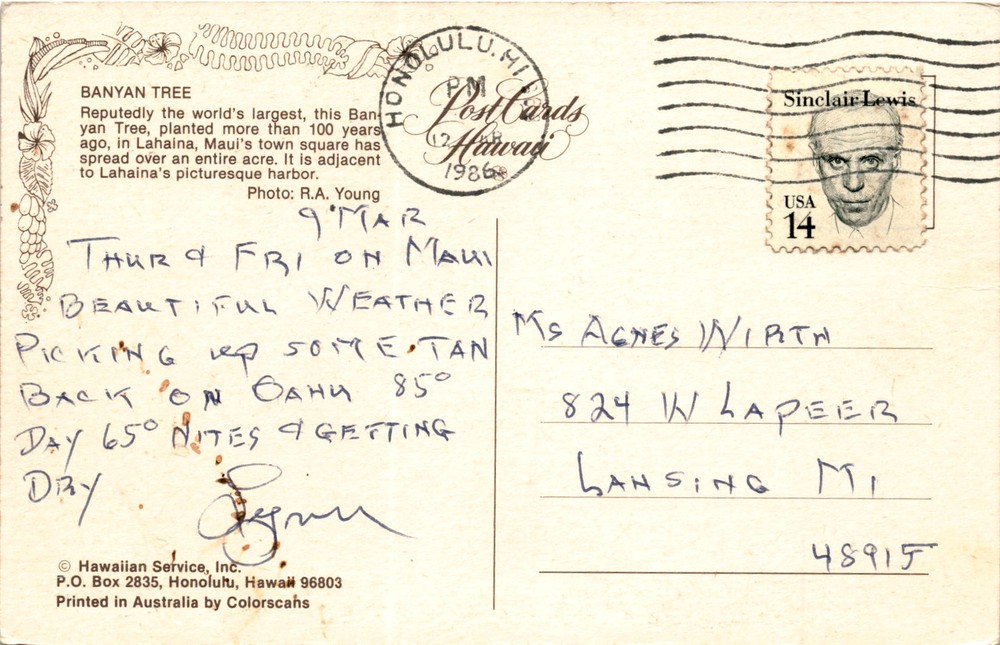 BANYAN TREE
Reputedly the world's largest, this Ban-
yan Tree, planted more than 100 years
ago, in Lahaina, Maui's town square has
spread over an entire acre. It is adjacent
to Lahaina's picturesque harbor.
Photo: R.A. Young
HONOLULU, HI
PM
12 MAR
1986
Post Cards
Hawaii
Sinclair Lewis
USA
14
9 MAR
THUR & FRI ON MAUI
BEAUTIFUL WEATHER
PICKING UP SOME TAN
BACK ON OAHU 85°
DAY 65° NITES & GETTING
DRY
MS AGNES WIRTH
824 W LAPEER
LANSING MI
48915
© Hawaiian Service, Inc.
P.O. Box 2835, Honolulu, Hawaii 96803
Printed in Australia by Colorscans